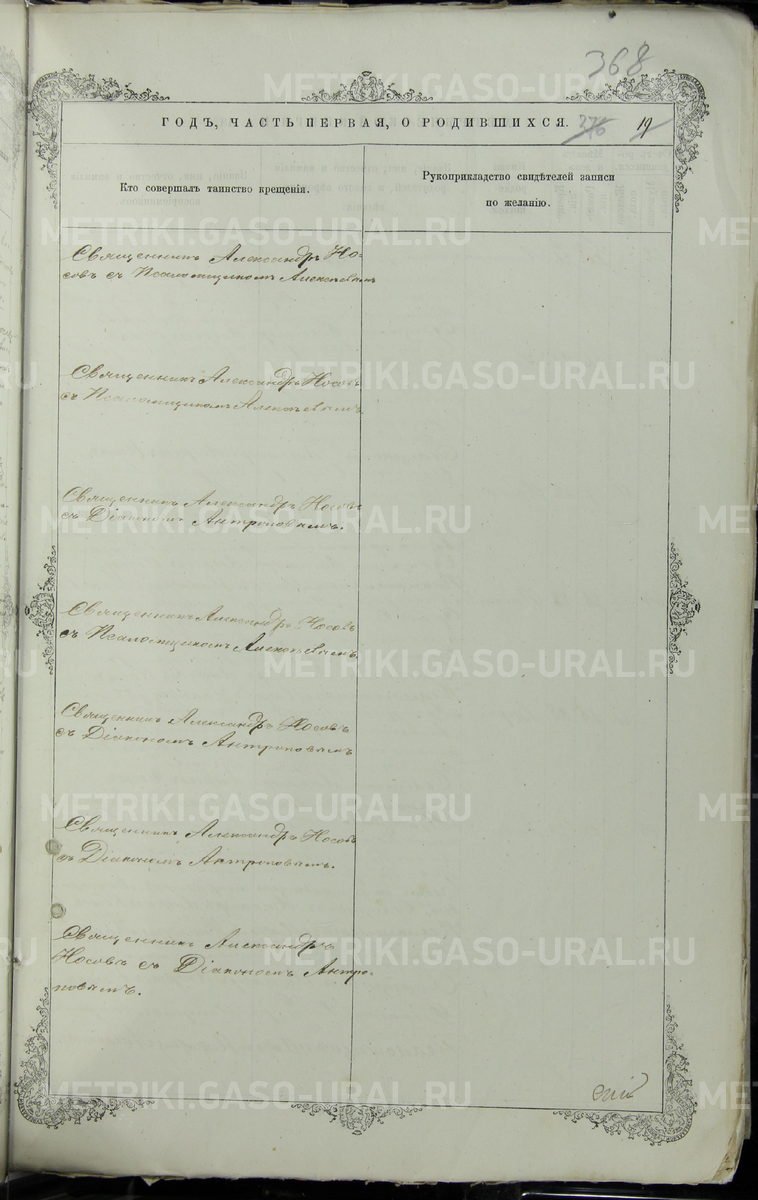 368
ГОДЪ, ЧАСТЬ ПЕРВАЯ, О РОДИВШИХСЯ. 376 19
Кто совершалъ таинство крещенія.
Рукоприкладство свидѣтелей записи
по желанію.
Священникъ Александръ Но-
совъ съ Псаломщикомъ Алексѣевымъ
Священникъ Александръ Носовъ
съ Псаломщикомъ Алексѣевымъ.
Священникъ Александръ Носовъ
съ Діакономъ Антроповымъ.
Священникъ Александръ Носовъ
съ Псаломщикомъ Алексѣевымъ.
Священникъ Александръ Носовъ
съ Діакономъ Антроповымъ
Священникъ Александръ Носовъ
съ Діакономъ Антроповымъ.
Священникъ Александръ
Носовъ съ Діакономъ Антро-
повымъ.
METRIKI.GASO-URAL.RU